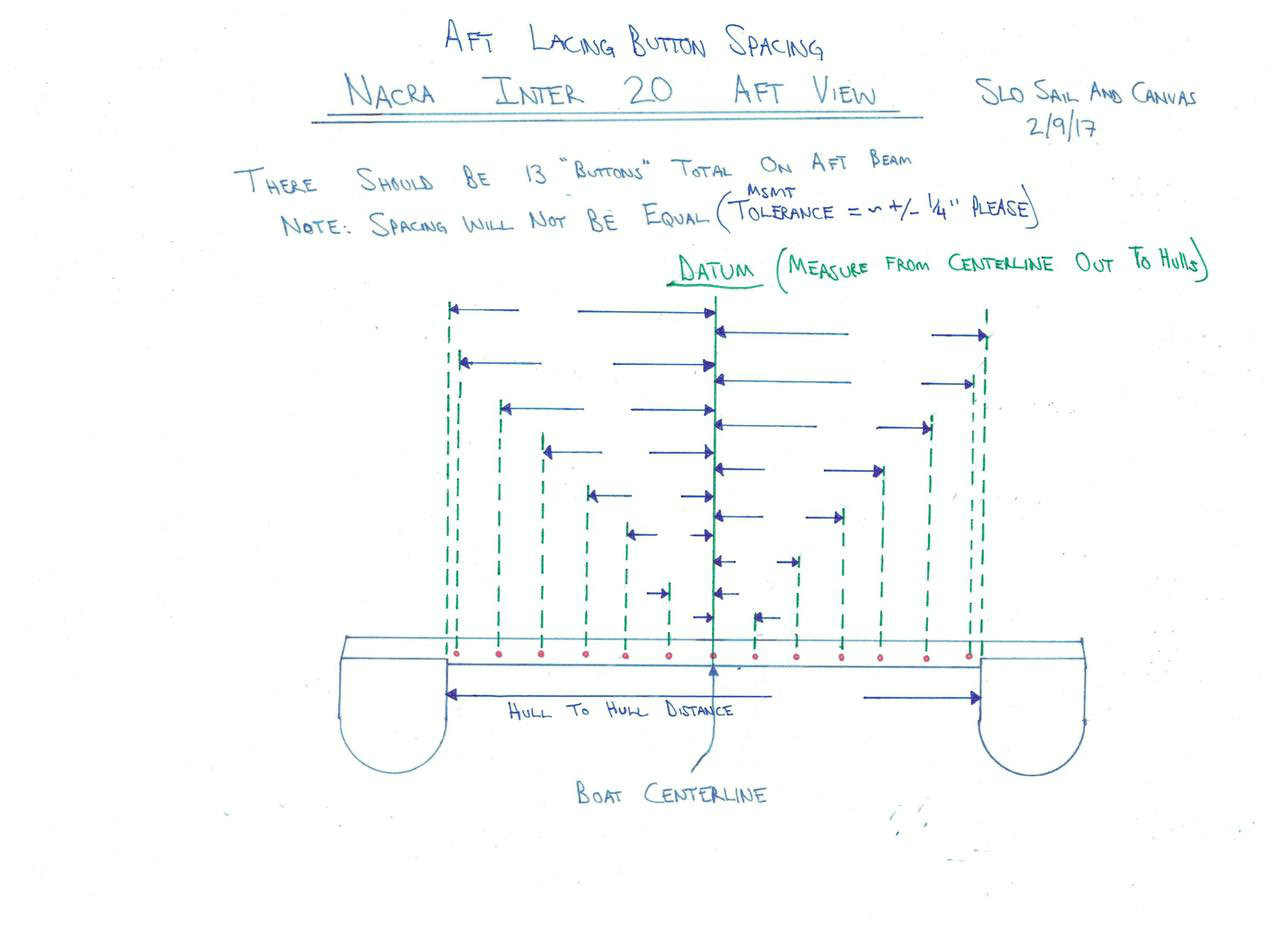 AFT LACING BUTTON SPACING
NACRA INTER 20 AFT VIEW
SLO SAIL AND CANVAS
2/9/17
THERE SHOULD BE 13 "BUTTONS" TOTAL ON AFT BEAM
NOTE: SPACING WILL NOT BE EQUAL (MSMT TOLERANCE = ~ +/- 1/4" PLEASE)
DATUM (MEASURE FROM CENTERLINE OUT TO HULLS)
HULL TO HULL DISTANCE
BOAT CENTERLINE